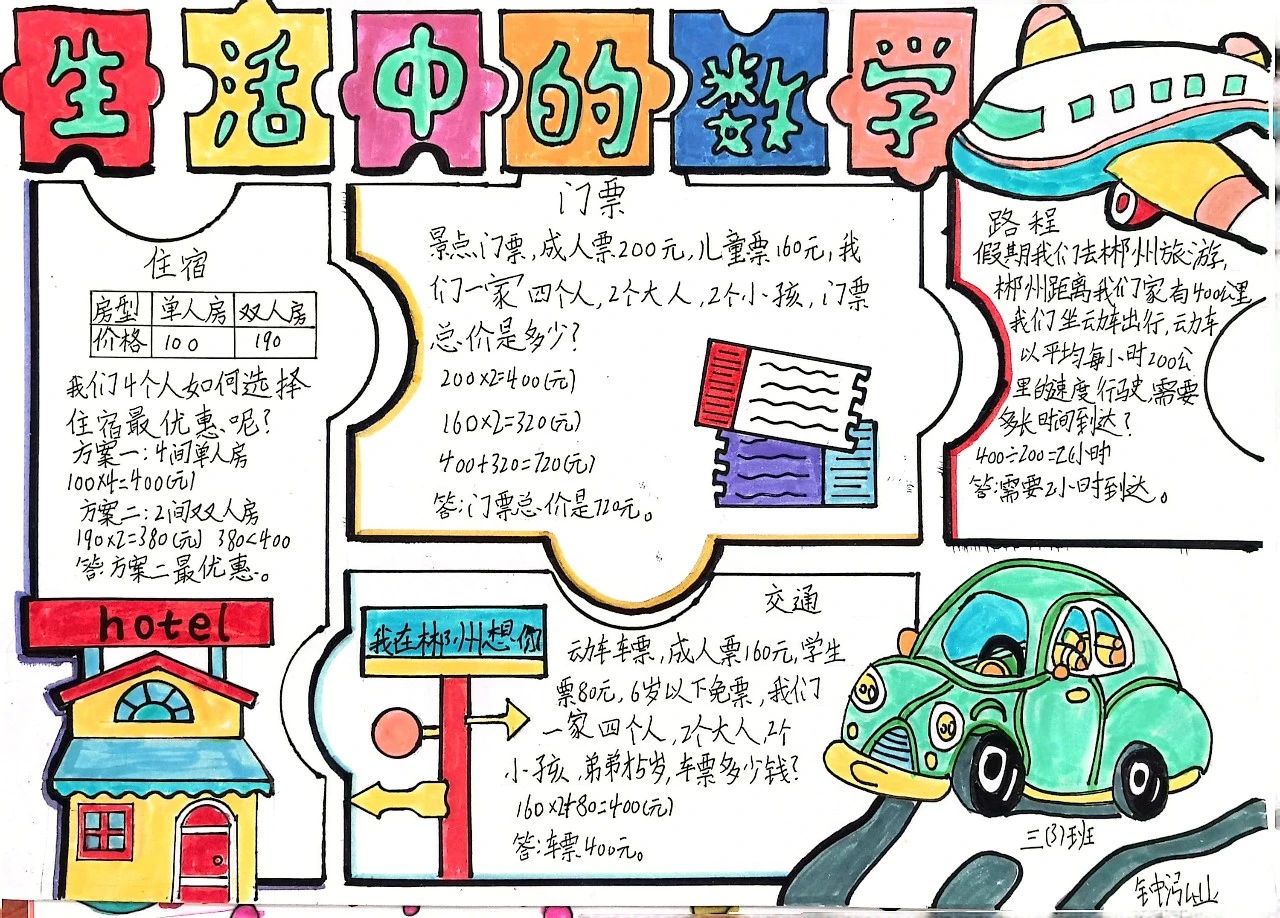 生活中的数学
住宿
房型 单人房 双人房
价格 100 190
我们4个人如何选择
住宿最优惠呢?
方案一:4间单人房
100×4=400(元)
方案二:2间双人房
190×2=380(元) 380<400
答:方案二最优惠。
hotel
门票
景点门票,成人票200元,儿童票160元,我
们一家四个人,2个大人,2个小孩,门票
总价是多少?
200×2=400(元)
160×2=320(元)
400+320=720(元)
答:门票总价是720元。
路程
假期我们去郴州旅游,
郴州距离我们家有400公里
我们坐动车出行,动车
以平均每小时200公
里的速度行驶,需要
多长时间到达?
400÷200=2小时
答:需要2小时到达。
我在郴州想你
交通
动车车票,成人票160元,学生
票80元,6岁以下免票,我们
一家四个人,2个大人,2个
小孩,弟弟才5岁,车票多少钱?
160×2+80=400(元)
答:车票400元。
三(3)班